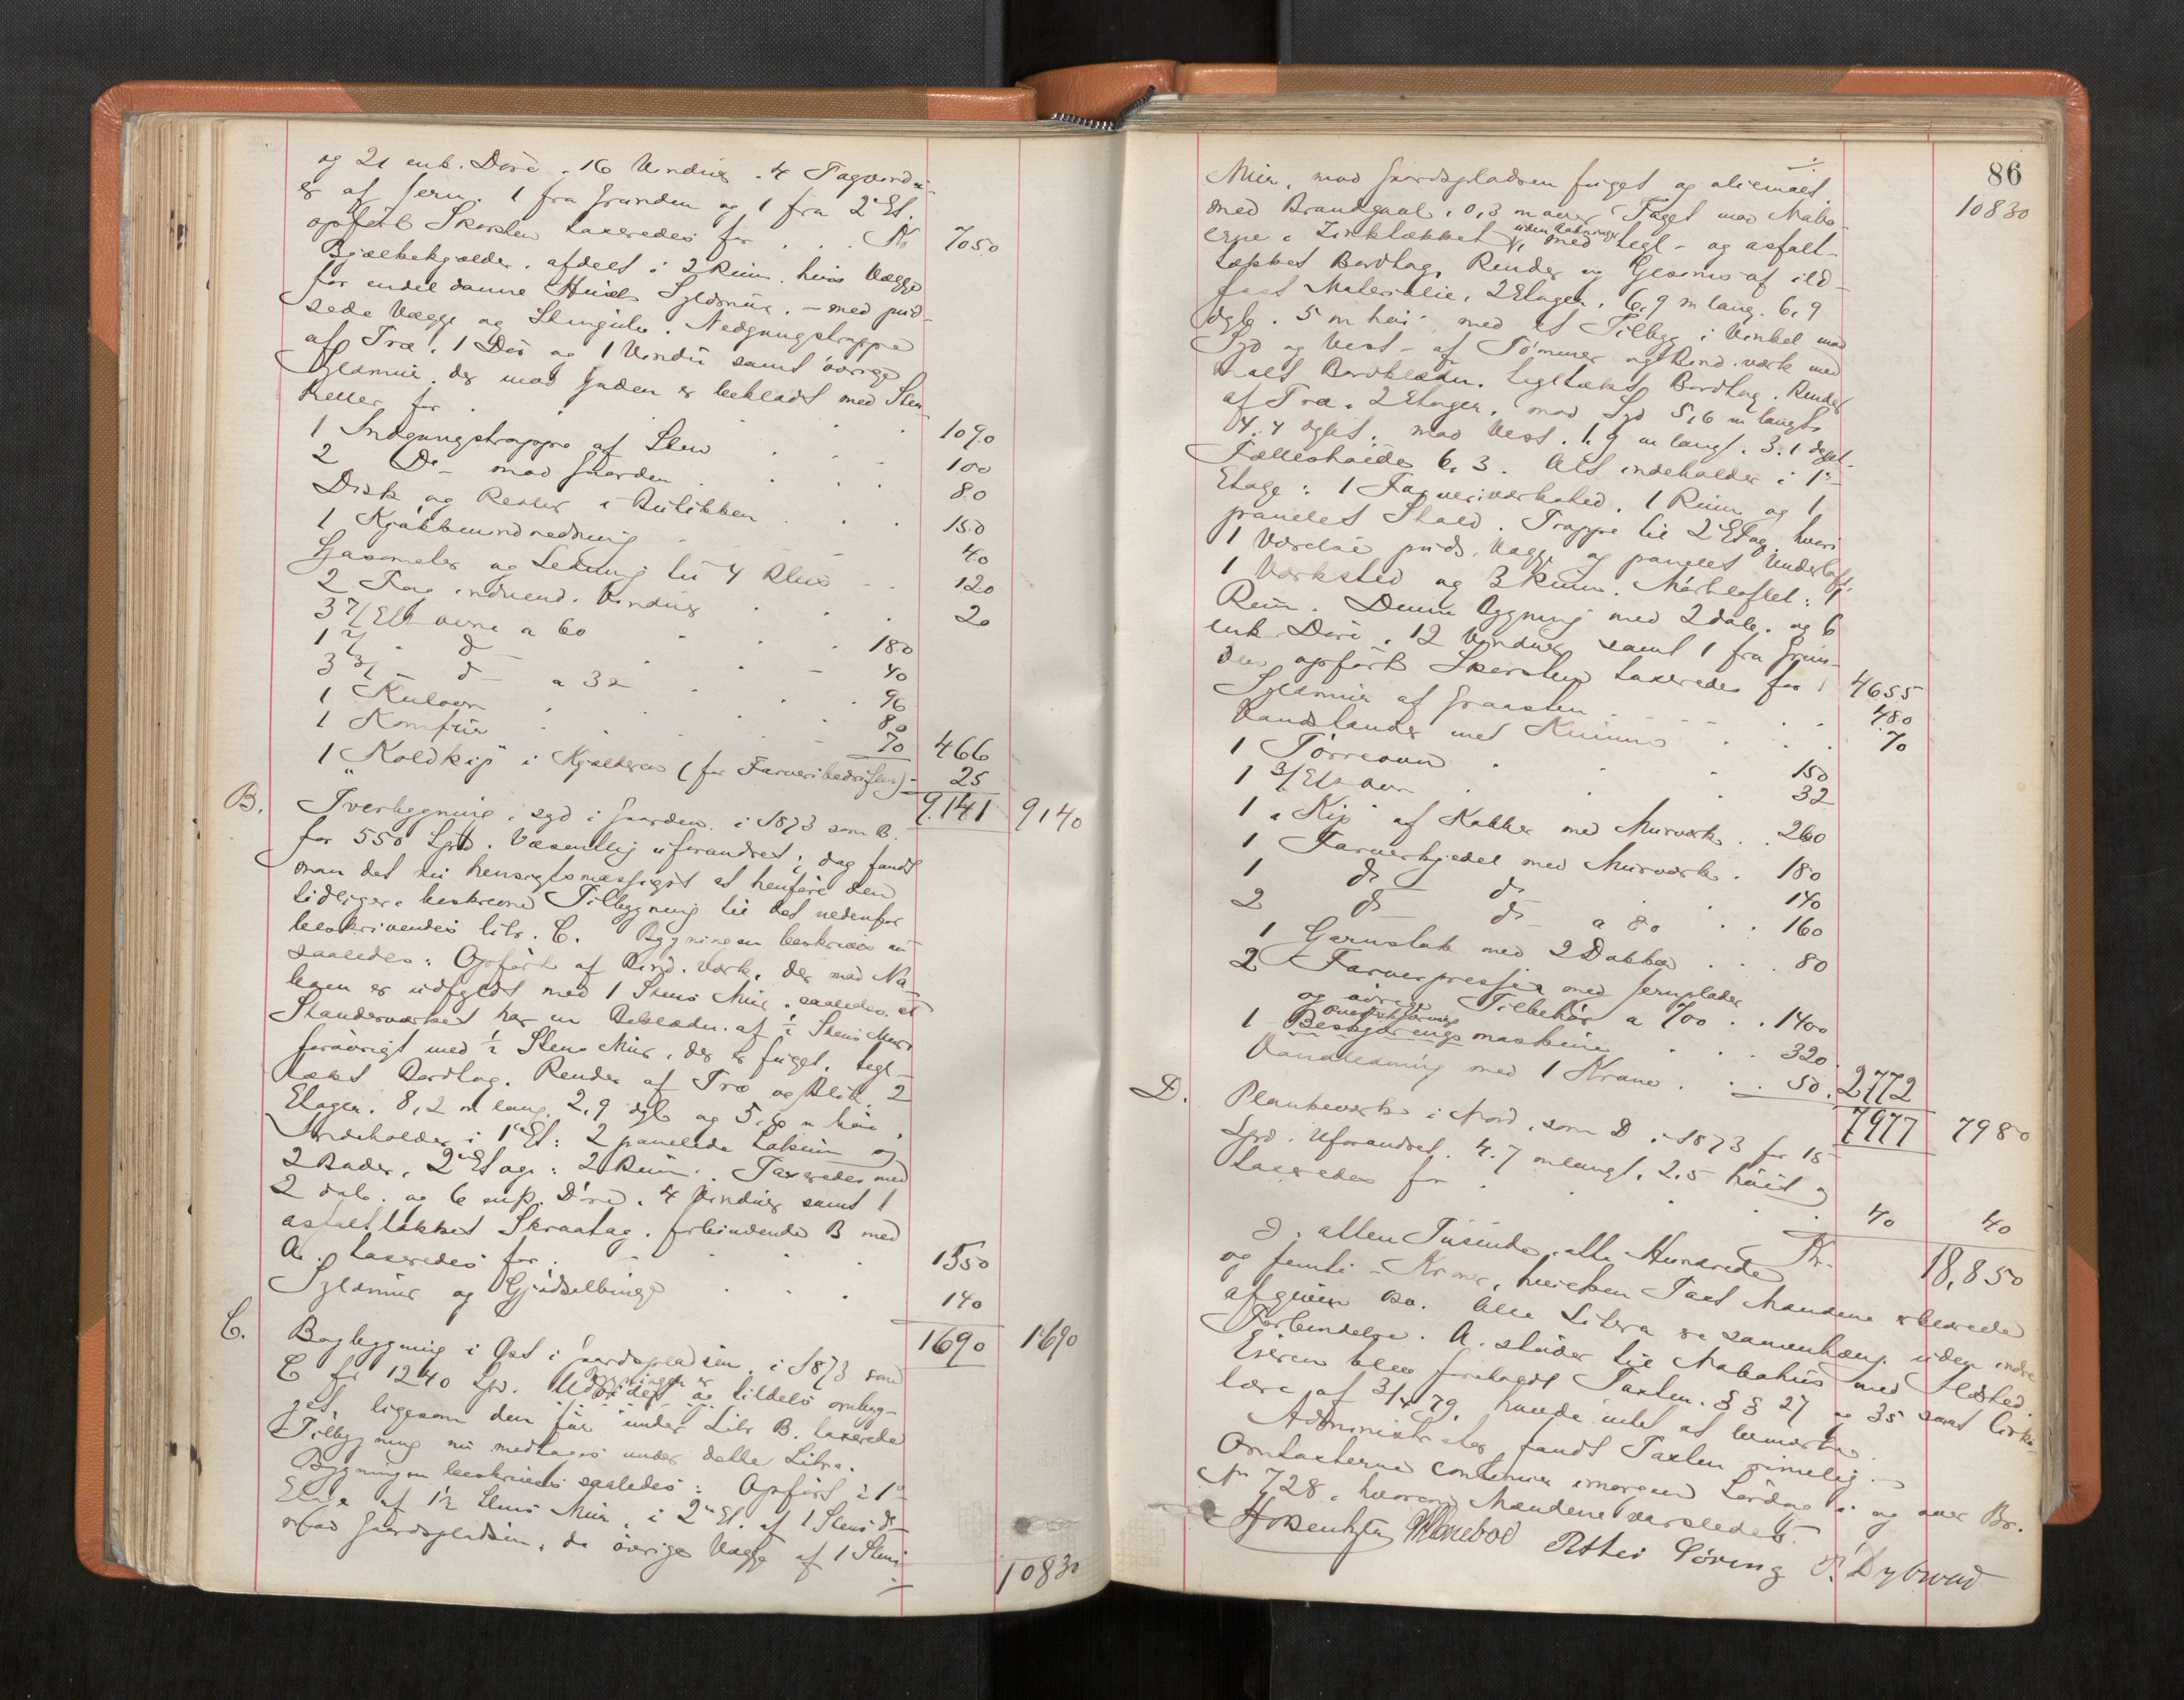 og 21 enk. Döre, 16 Vinduer, 4 Tagvindu-
er af Jern. 1 fra Grunden og 1 fra 2den Et.
opført Skorsten taxeredes for . . . Kr 7050
Bjælkekjælder, afdelt i 2 Rum, hvis Vægge
for endel danne Husets Syldmur, - med pud-
sede Vægge og Stengulv. Nedgangstrappe
af Træ, 1 Dör og 1 Vindu samt övrige
Syldmur, der mod Gaden er beklædt med Sten-
heller for . . . 1090
1 Indgangstrappe af Sten . . . 100
2 Do mod Gaarden . . . 80
Disk og Reoler i Butikken . . . 150
1 Kjökkenindredning . . . 40
Gasometer og Ledning til 4 Blus . . . 120
2 Fag indvend. Vinduer . . . 20
3 7/Et. ovne a 60 . . . 180
1 2/ " d . . . 40
3 3/ " d a 32 . . . 96
1 Kulovn . . . 80
1 Komfur . . . 70 466
1 "Koldkip" i Kjælderen (for Farveribedriften) 25
9.141 9140
B. Tverbygning, syd i Gaarden, i 1873 som B.
for 550 Spd. Væsentlig uforandret; dog fandt
man det nu hensigtsmæssigst at henföre den
tidligere beskrevne Tilbygning til det nedenfor
beskrivendes litr. C. Bygningen beskrives nu
saaledes: Opført af Bind. værk, der mod Na-
boen er udfyldt med 1 Stens Mur, saaledes at
Standerværket har en Beklædn. af ½ Stens Mur
forövrigt med ½ Stens Mur, der er fuget, tegl-
tækt Bordtag. Render af Træ og Blik. 2
Etager. 8,2 m lang. 2,9 dyb og 5,6 m höi.
Indeholder i 1ste Et: 2 panelede Lokum og
2 Boder, 2den Etage: 2 Rum. Taxeredes med
2 dob. og 6 enk. Döre, 4 Vinduer samt 1
asfalttækket Skraatag, forbindende B med
A. taxeredes for . . . 1550
Syldmur og Gjödselbinge . . . 140
1690 1690
C. Bagbygning i Öst i Gaardspladsen, i 1873 som
C for 1240 Spd. Bygningen er
Udvidet og tildels ombyg-
get, ligesom den för under Litr B. taxerede
Tilbygning nu medtages under dette Litra.
Bygningen beskrives saaledes: Opført i 1ste
Etage af 1½ Stens Mur, i 2den Et. af 1 Stens do
mod Gaardspladsen, de övrige Vægge af 1 Stens
10830
86
Mur, mod Gaardspladsen fuget og oliemalet,
10830
med Brandgavl, 0,3 m over Taget mod Nabo-
erne, Zinktækket uden Aabninger, med tegl- og asfalt-
tækket Bordtag, Render og Gesims af ild-
fast Materialie, 2 Etager, 6,9 m lang. 6,9
dyb. 5 m höi, med et Tilbyg i Vinkel mod
Syd og Vest - af Tömmer og Bind. værk med
malt Bordklædn. tegltækt Bordtag. Render
af Træ. 2 Etager, mod Syd 5,6 m langt
4,4 dybt, mod Vest. 1,9 m langt. 3,1 dybt.
Fælleshöide 6,3. Alt indeholder i 1ste
Etage: 1 Farveriværksted, 1 Rum og 1
panelet Stald. Trappe til 2 Etage, hvori
1 Værelse puds. Vægge og panelet Underloft,
1 Værksted og 3 Rum. Mörkloftet: 1
Rum. Denne Bygning med 2 dob. og 6
enk. Döre, 12 Vinduer samt 1 fra Grun-
den opført Skorsten taxeredes for 4655
Syldmur af Graasten . . . 480
Vandstander med Kumme . . . 70
1 Törreovn . . . 150
1 3/Et. ovn . . . 32
1 "Kip" af Kobber med Murværk . . 260
1 Farverkjedel med Murværk . 180
1 do do . . 140
2 do do a 80 . . 160
1 Garnstok med 2 Dokker . . . 80
2 Farverpresser med Jernplader
og övrige Tilbehör a 700 . . 1400
1 Overskjærings
Beskjærings maskine . . . 320
Vandledning med 1 Krane . . . 50. 2772
7977 7980
D. Plankeværk i Nord, som D i 1873 for 15
Spd. Uforandret. 4.7 m langt, 2,5 höit og
taxeredes for . . . 40 40
Kr. 18,850
d. atten Tusinde, otte Hundrede
og femti - Kroner, hvilken Taxt Mændene erklærede
afgiven bv. Alle Litra er sammenhæng. uden indre
Forbindelse. A. stöder til Nabohus med Ildsted.
Eieren blev forelagt Taxten. §§ 27 og 35 samt Cirku-
lære af 3/4 79, havde intet at bemærke.
Administrator fandt Taxten rimelig. -
Omtaxterne continuer imorgen Lördag i og over Br.
No 728, hvorom Mændene varsledes.
Petter Söreng P. Dybwad